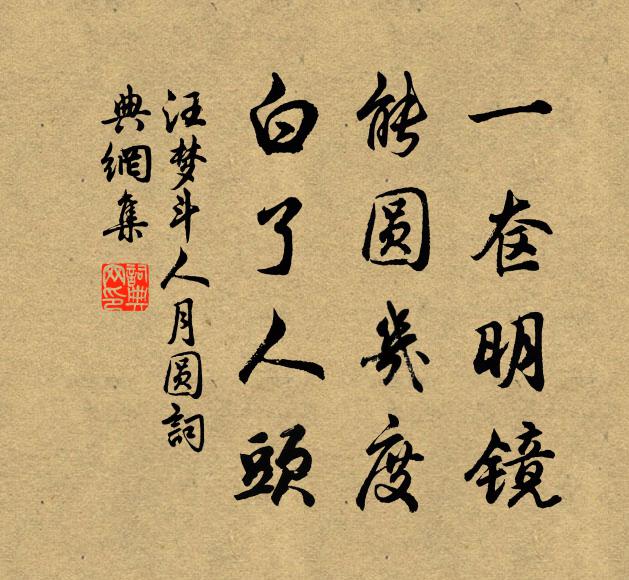 一奁明镜
能圆几度
白了人頭
汪梦斗人月圆詞
典網集
詞典网印